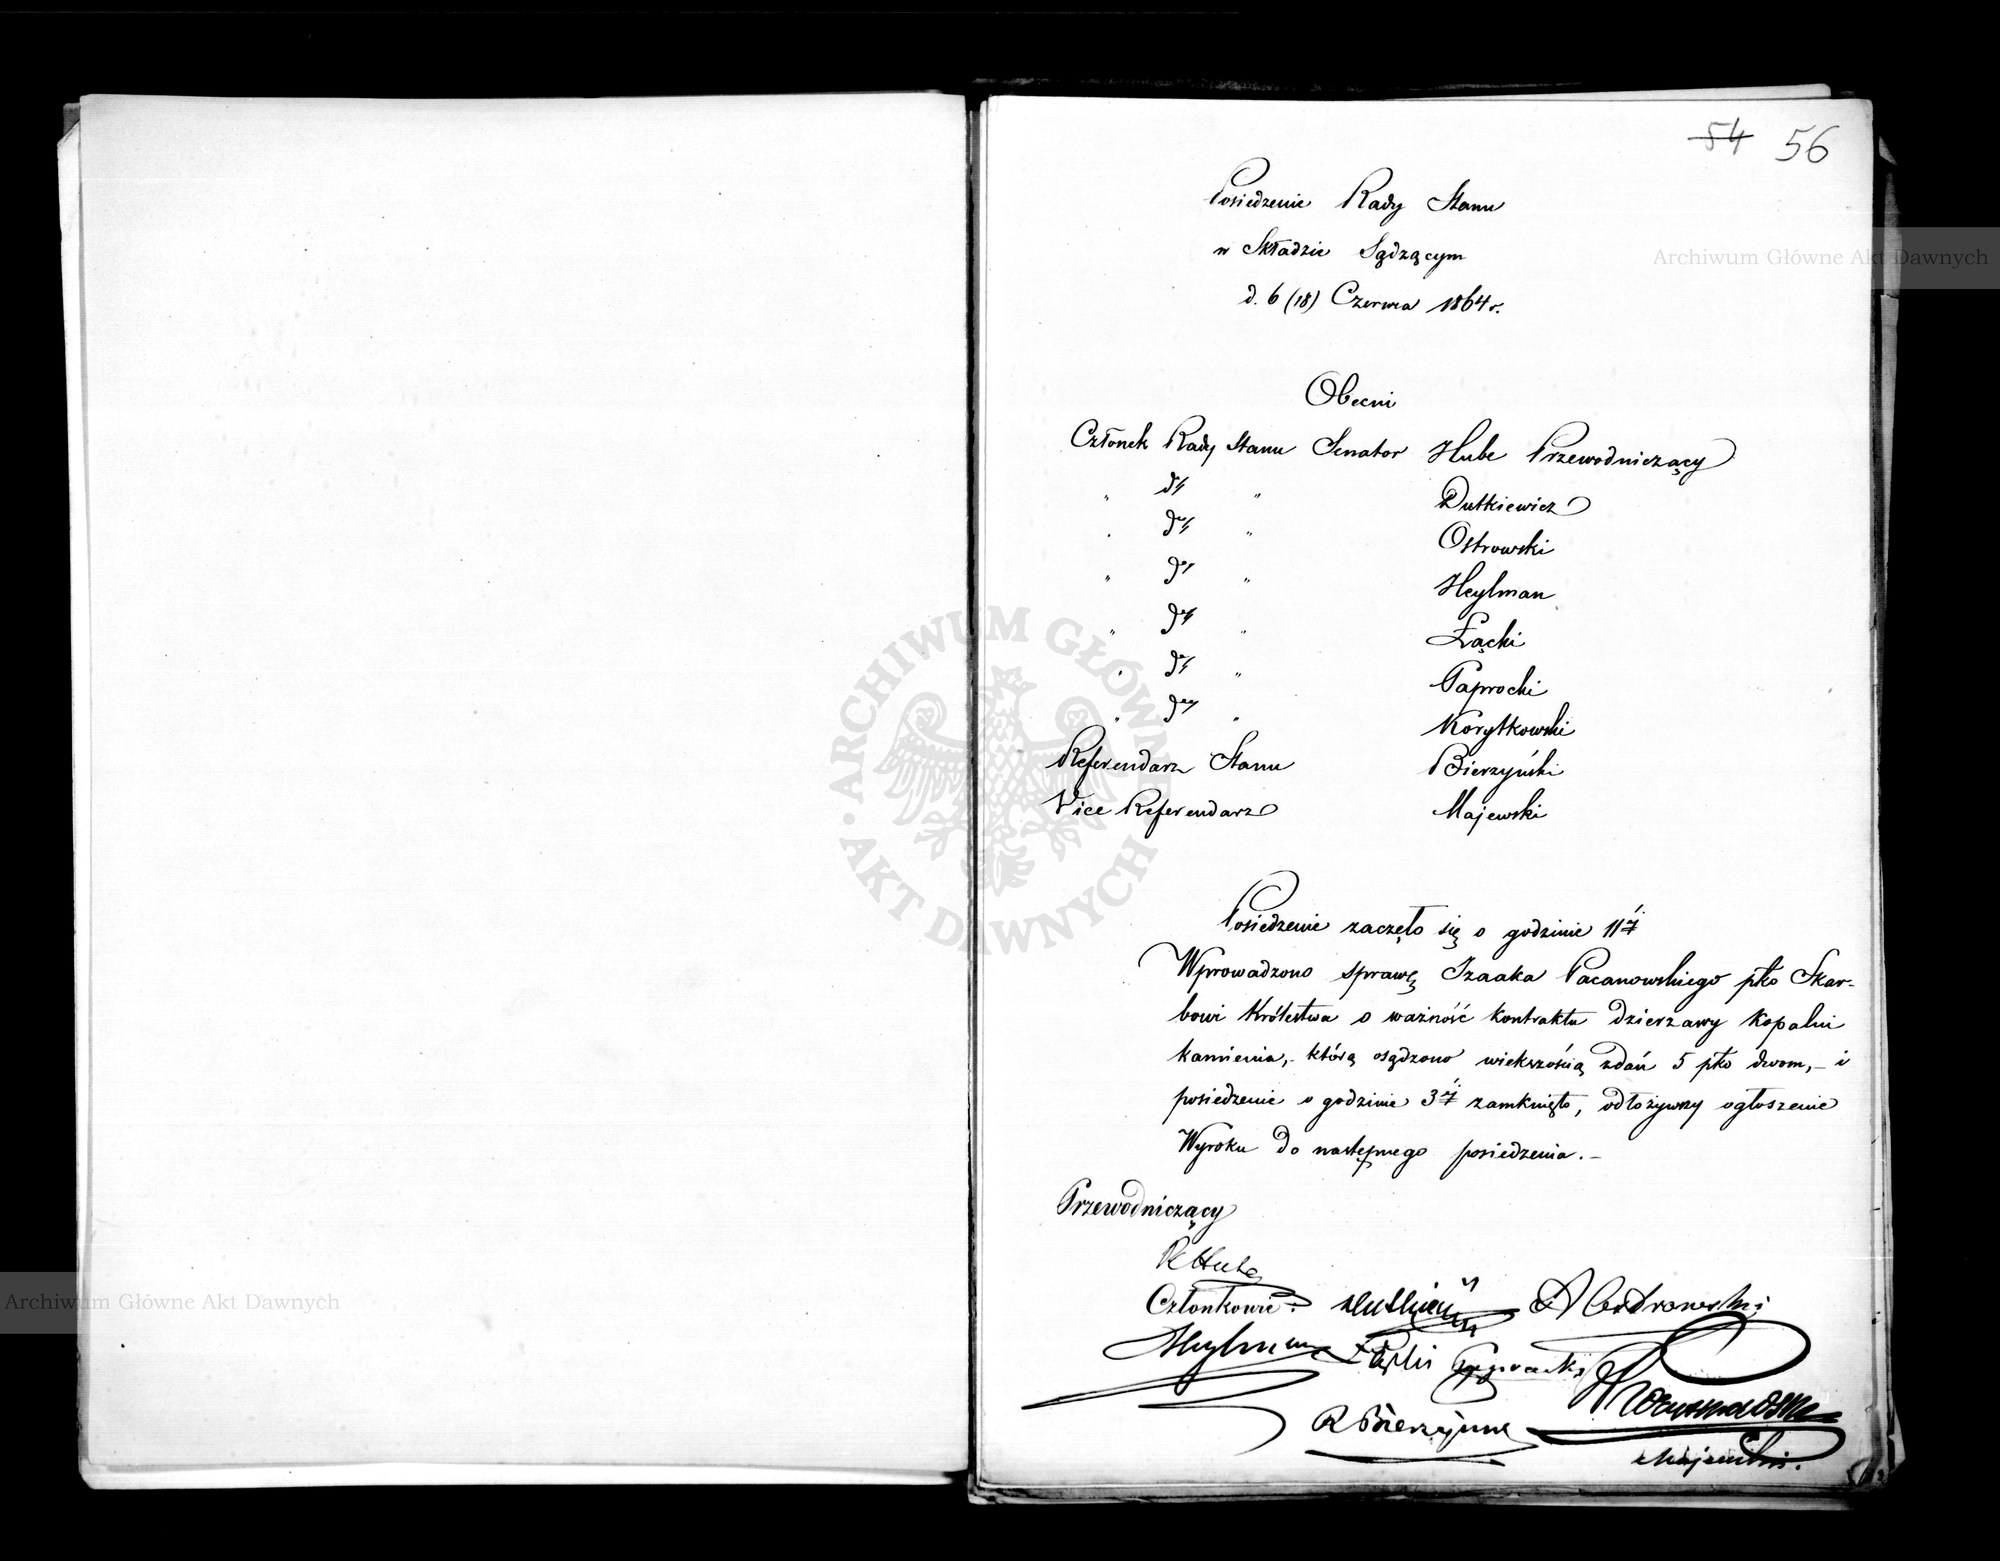 54 56
Posiedzenie Rady Stanu
w Składzie Sądzącym
d. 6 (18) Czerwca 1864 r.
Obecni
Członek Rady Stanu Senator Hube Przewodniczący
" dº " Dutkiewicz
" dº " Ostrowski
" dº " Heylman
" dº " Łącki
" dº " Paprocki
" dº " Korytkowski
Referendarz Stanu Bierzyński
Vice Referendarz Majewski
Posiedzenie zaczęło się o godzinie 11éj
Wprowadzono sprawę Izaaka Pacanowskiego pko Skar-
bowi Królestwa o ważność kontraktu dzierzawy kopalni
kamienia,- którą osądzono wiekszością zdań 5 pko dwom,- i
posiedzenie o godzinie 3éj zamknięto, odłożywszy ogłoszenie
Wyroku do następnego posiedzenia.-
Przewodniczący
R Hube
Członkowie: Dutkiewicz A Ostrowski
Heylman Łącki Paprocki
R Bierzyński
Majewski.
Archiwum Główne Akt Dawnych
Archiwum Główne Akt Dawnych
ARCHIWUM GŁÓWNE AKT DAWNYCH